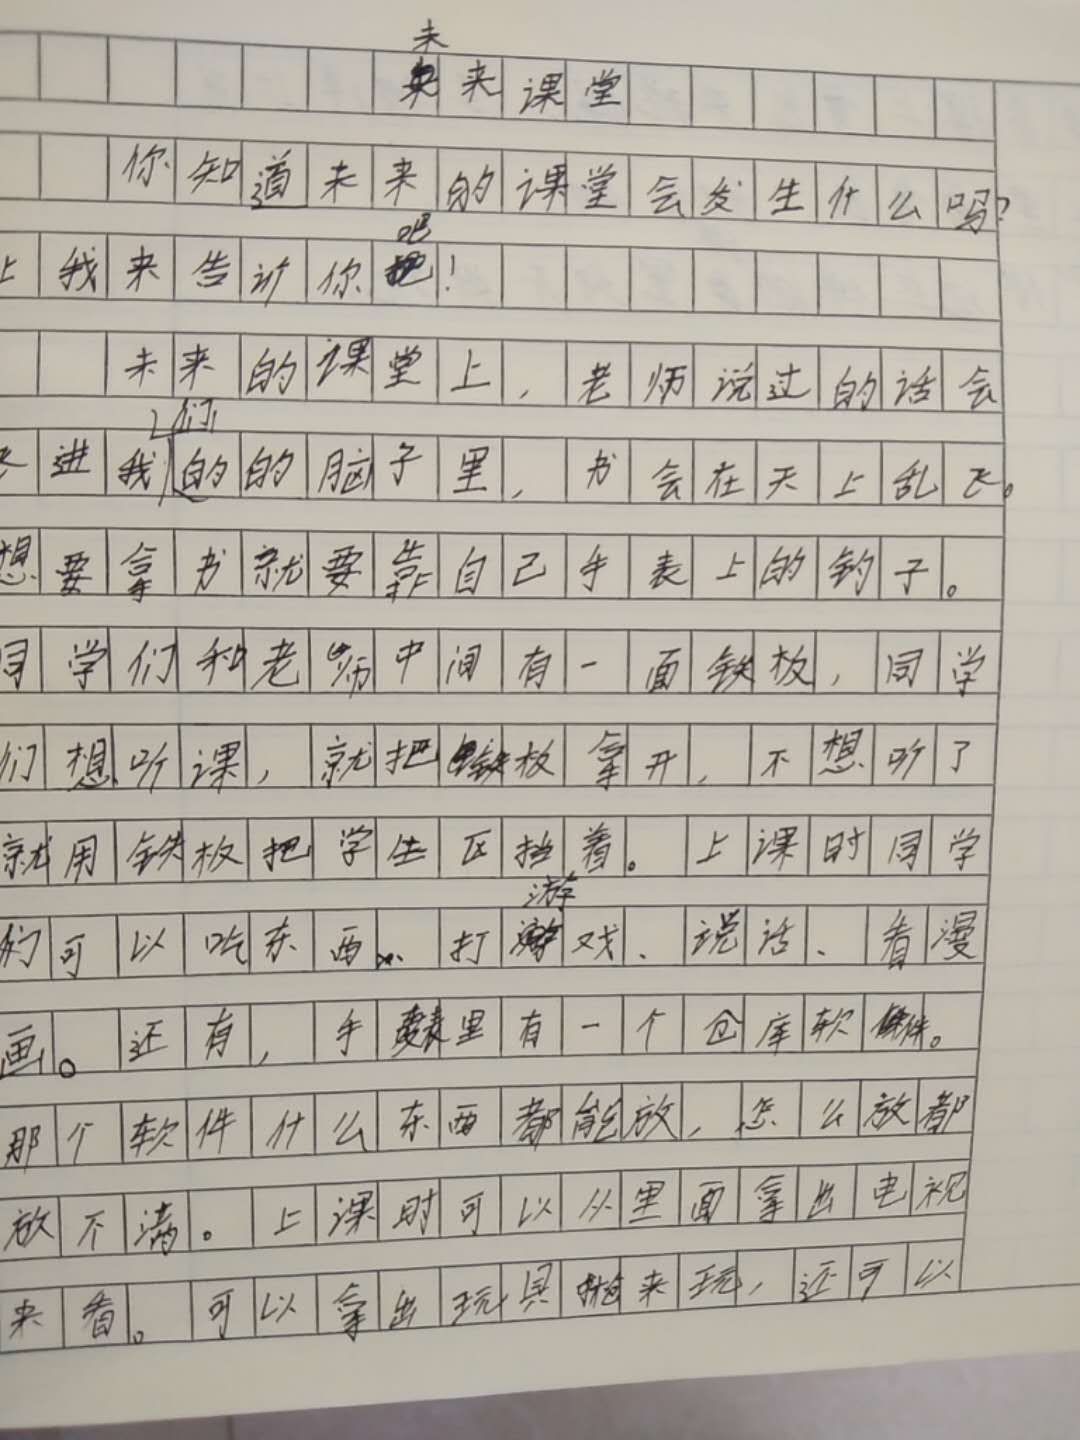 未来课堂
你知道未来的课堂会发生什么吗?
上我来告讣你吧!
未来的课堂上,老师说过的话会
飞进我们的的脑子里,书会在天上乱飞。
想要拿书就要靠自己手表上的钓子。
同学们和老师中间有一面铁板,同学
们想听课,就把铁板拿开,不想听了
就用铁板把学生区挡着。上课时同学
们可以吃东西、打游戏、说话、看漫
画。还有,手表里有一个仓库软件。
那个软件什么东西都能放,怎么放都
放不满。上课时可以从里面拿出电视
来看。可以拿出玩具抛来玩,还可以